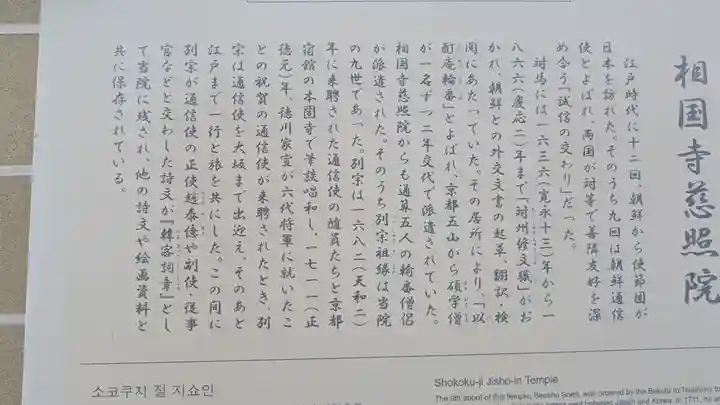 相国寺慈照院
江戸時代に十二回、朝鮮から使節団が
日本を訪れた。そのうち九回は朝鮮通信
使とよばれ、両国が対等で善隣友好を深
め合う「誠信の交わり」だった。
対馬には一六三六(寛永十三)年から一
八六六(慶応二)年まで「対州修文職」がお
かれ、朝鮮との外交文書の起草、翻訳・検
閲にあたっていた。その居所により、「以
酊庵輪番」とよばれ、京都五山から碩学僧
が一名ずつ二年交代で派遣されていた。
相国寺慈照院からも通算五人の輪番僧侶
が派遣された。そのうち別宗祖縁は当院
の九世であった。別宗は一六八二(天和二)
年に来聘された通信使の随員たちと京都
宿館の本圀寺で筆談唱和し、一七一一(正
徳元)年、徳川家宣が六代将軍に就いたこ
との祝賀の通信使が来聘されたとき、別
宗は通信使を大坂まで出迎え、そのあと
江戸まで一行と旅を共にした。この間に
別宗が通信使の正使趙泰億や副使・従事
官などと交わした詩文が『韓客詞章』とし
て当院に残され、他の詩文や絵画資料と
共に保存されている。
소코쿠지 절 지쇼인
Shokoku-ji Jisho-in Temple
The 9th abbot of this temple, Besshu Soen, was ordered by the Bakufu to Tsushima to
between Japan and Korea. In 1711, he